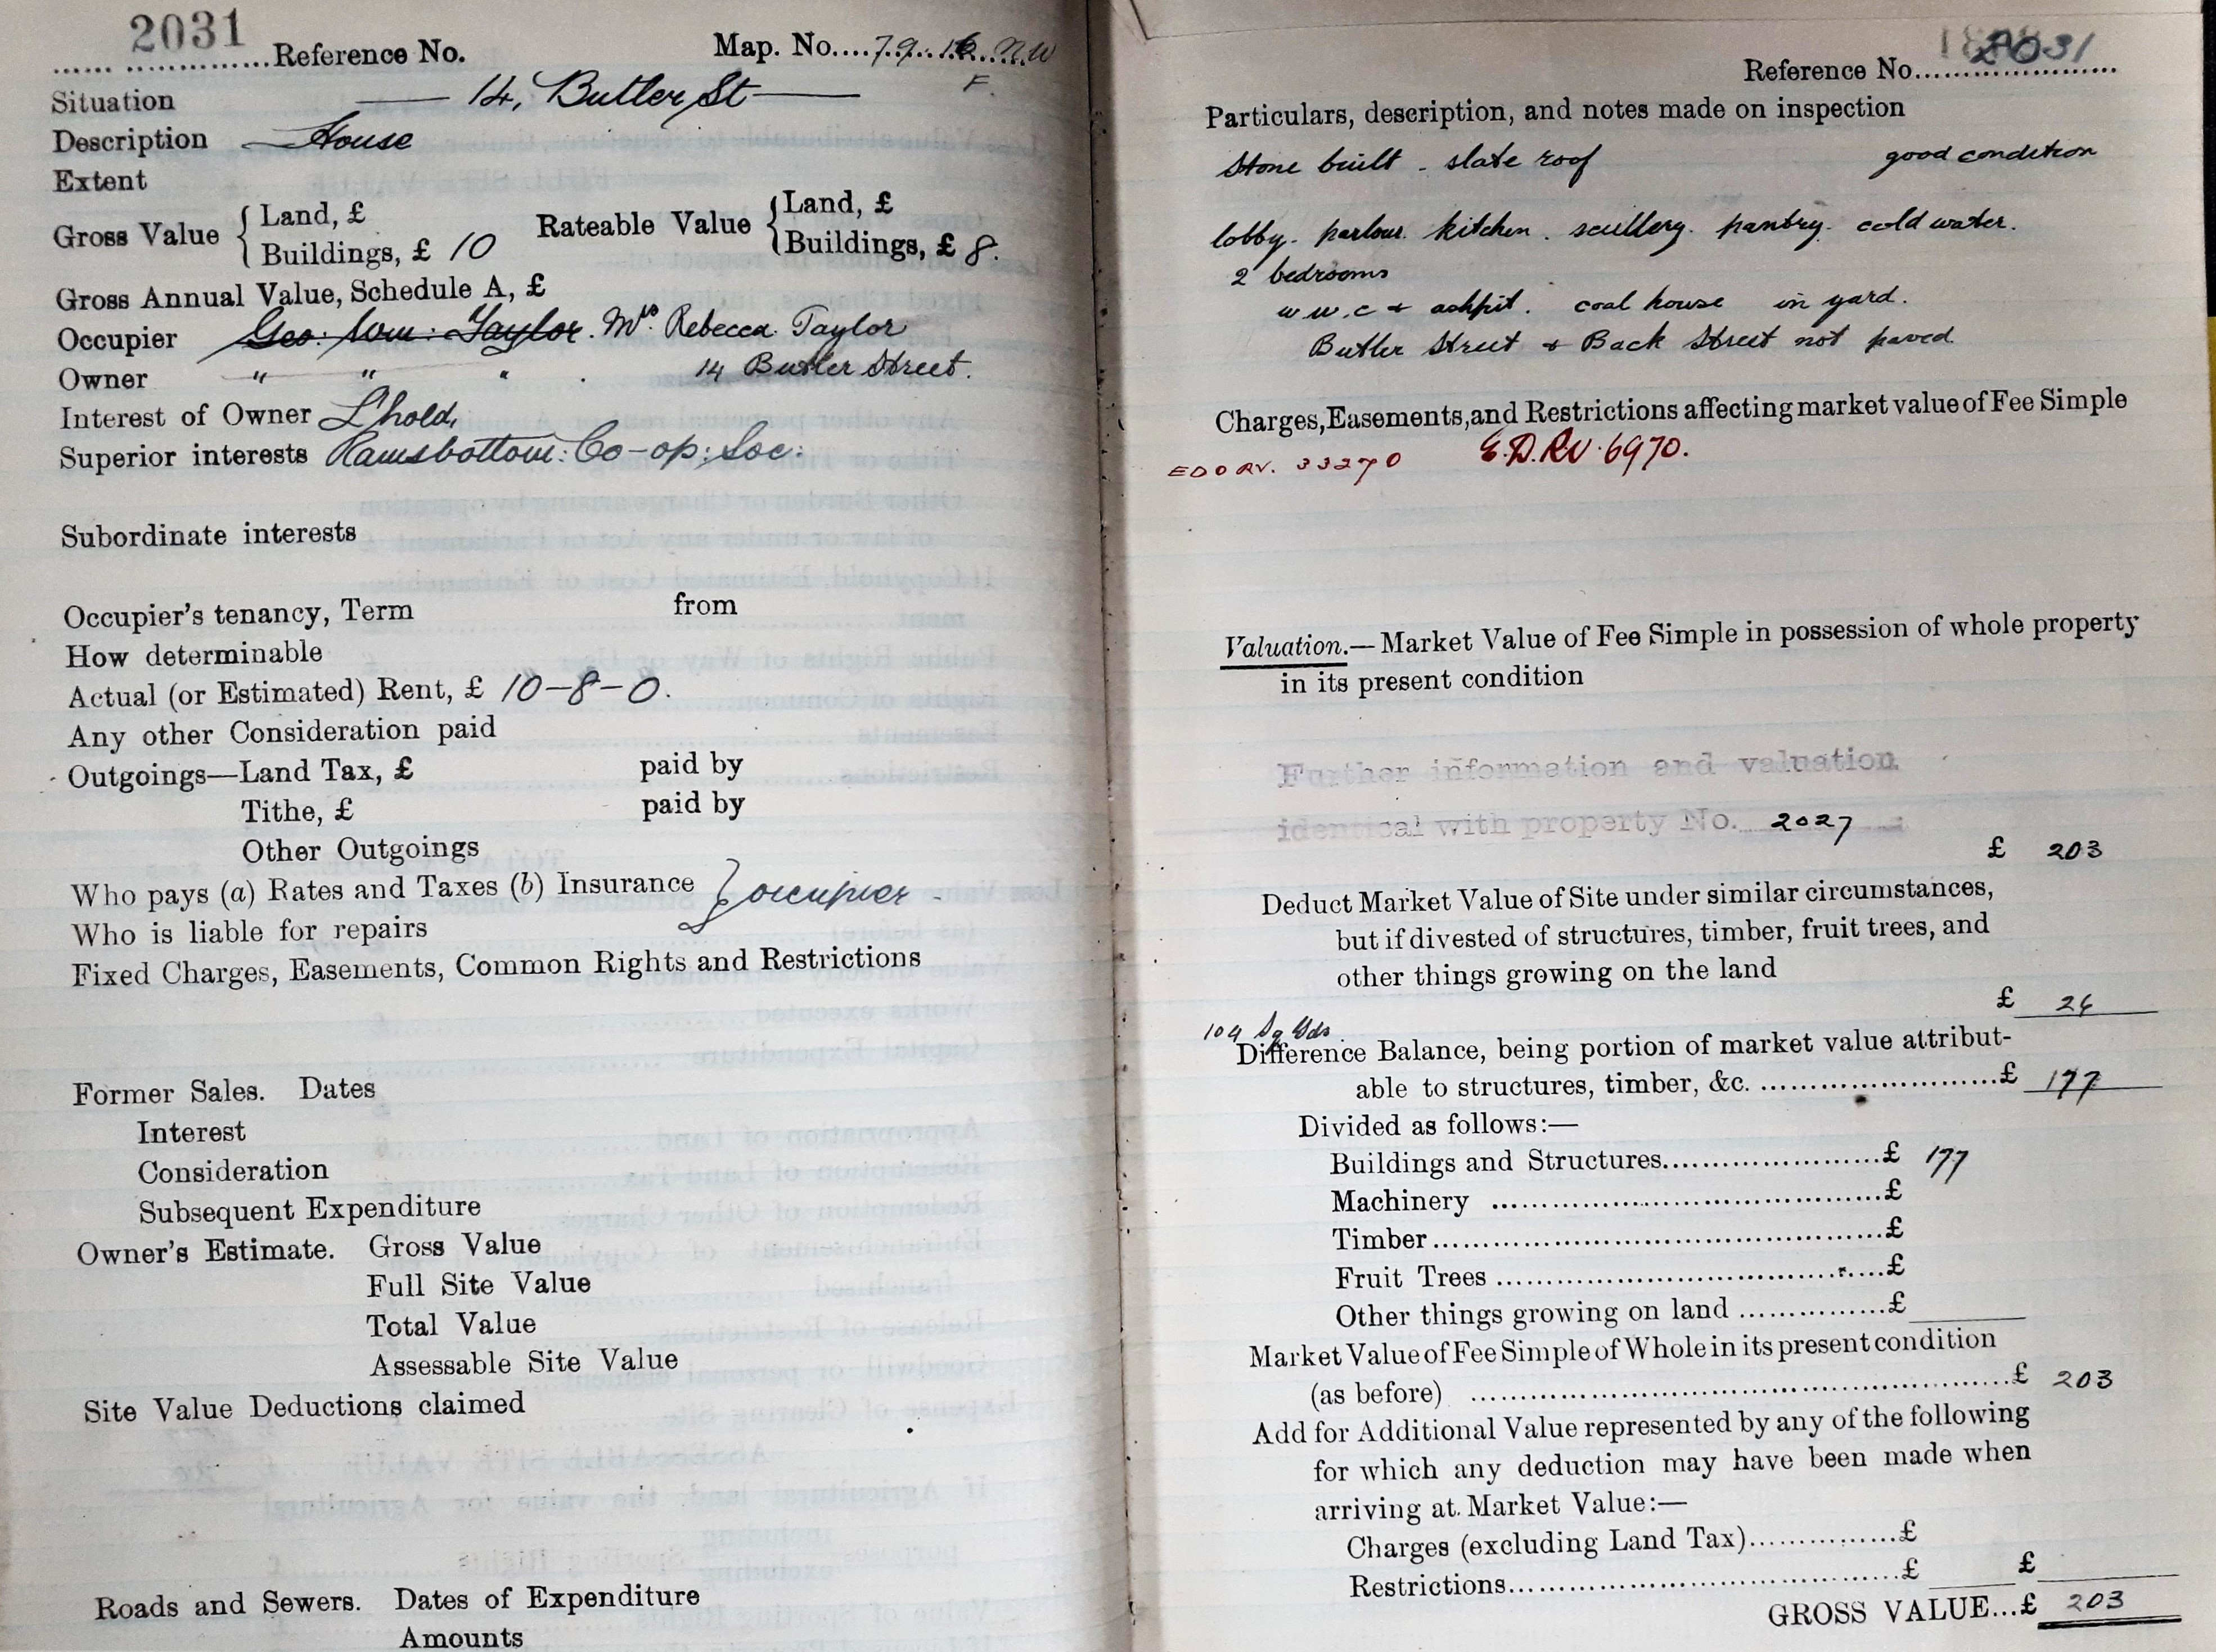 2031
Reference No.
Map. No....79.16.NW
F.
Situation 14, Butler St
Description House
Extent
Gross Value { Land, £
Buildings, £ 10
Rateable Value { Land, £
Buildings, £ 8.
Gross Annual Value, Schedule A, £
Occupier Geo: Wm: Taylor. Mrs. Rebecca Taylor
Owner " " " 14 Butler Street.
Interest of Owner L'hold,
Superior interests Ramsbottom: Co-op: Soc:
Subordinate interests
Occupier's tenancy, Term from
How determinable
Actual (or Estimated) Rent, £ 10-8-0.
Any other Consideration paid
Outgoings—Land Tax, £ paid by
Tithe, £ paid by
Other Outgoings
Who pays (a) Rates and Taxes (b) Insurance } occupier
Who is liable for repairs
Fixed Charges, Easements, Common Rights and Restrictions
Former Sales. Dates
Interest
Consideration
Subsequent Expenditure
Owner's Estimate. Gross Value
Full Site Value
Total Value
Assessable Site Value
Site Value Deductions claimed
Roads and Sewers. Dates of Expenditure
Amounts
Reference No. 2031
Particulars, description, and notes made on inspection
Stone built - slate roof good condition
lobby. parlour. kitchen. scullery. pantry. cold water.
2 bedrooms
w.w.c + ashpit. coal house in yard.
Butler Street + Back Street not paved.
Charges, Easements, and Restrictions affecting market value of Fee Simple
EDORV. 33270 E.D.RV.6970.
Valuation.—Market Value of Fee Simple in possession of whole property
in its present condition
Further information and valuation
identical with property No. 2027
£ 203
Deduct Market Value of Site under similar circumstances,
but if divested of structures, timber, fruit trees, and
other things growing on the land
£ 26
104 Sq Yds
Difference Balance, being portion of market value attribut-
able to structures, timber, &c. ..........£ 177
Divided as follows:—
Buildings and Structures..........£ 177
Machinery ..........£
Timber..........£
Fruit Trees ..........£
Other things growing on land ..........£
Market Value of Fee Simple of Whole in its present condition
(as before) ..........£ 203
Add for Additional Value represented by any of the following
for which any deduction may have been made when
arriving at Market Value:—
Charges (excluding Land Tax)..........£
Restrictions..........£ £
GROSS VALUE...£ 203